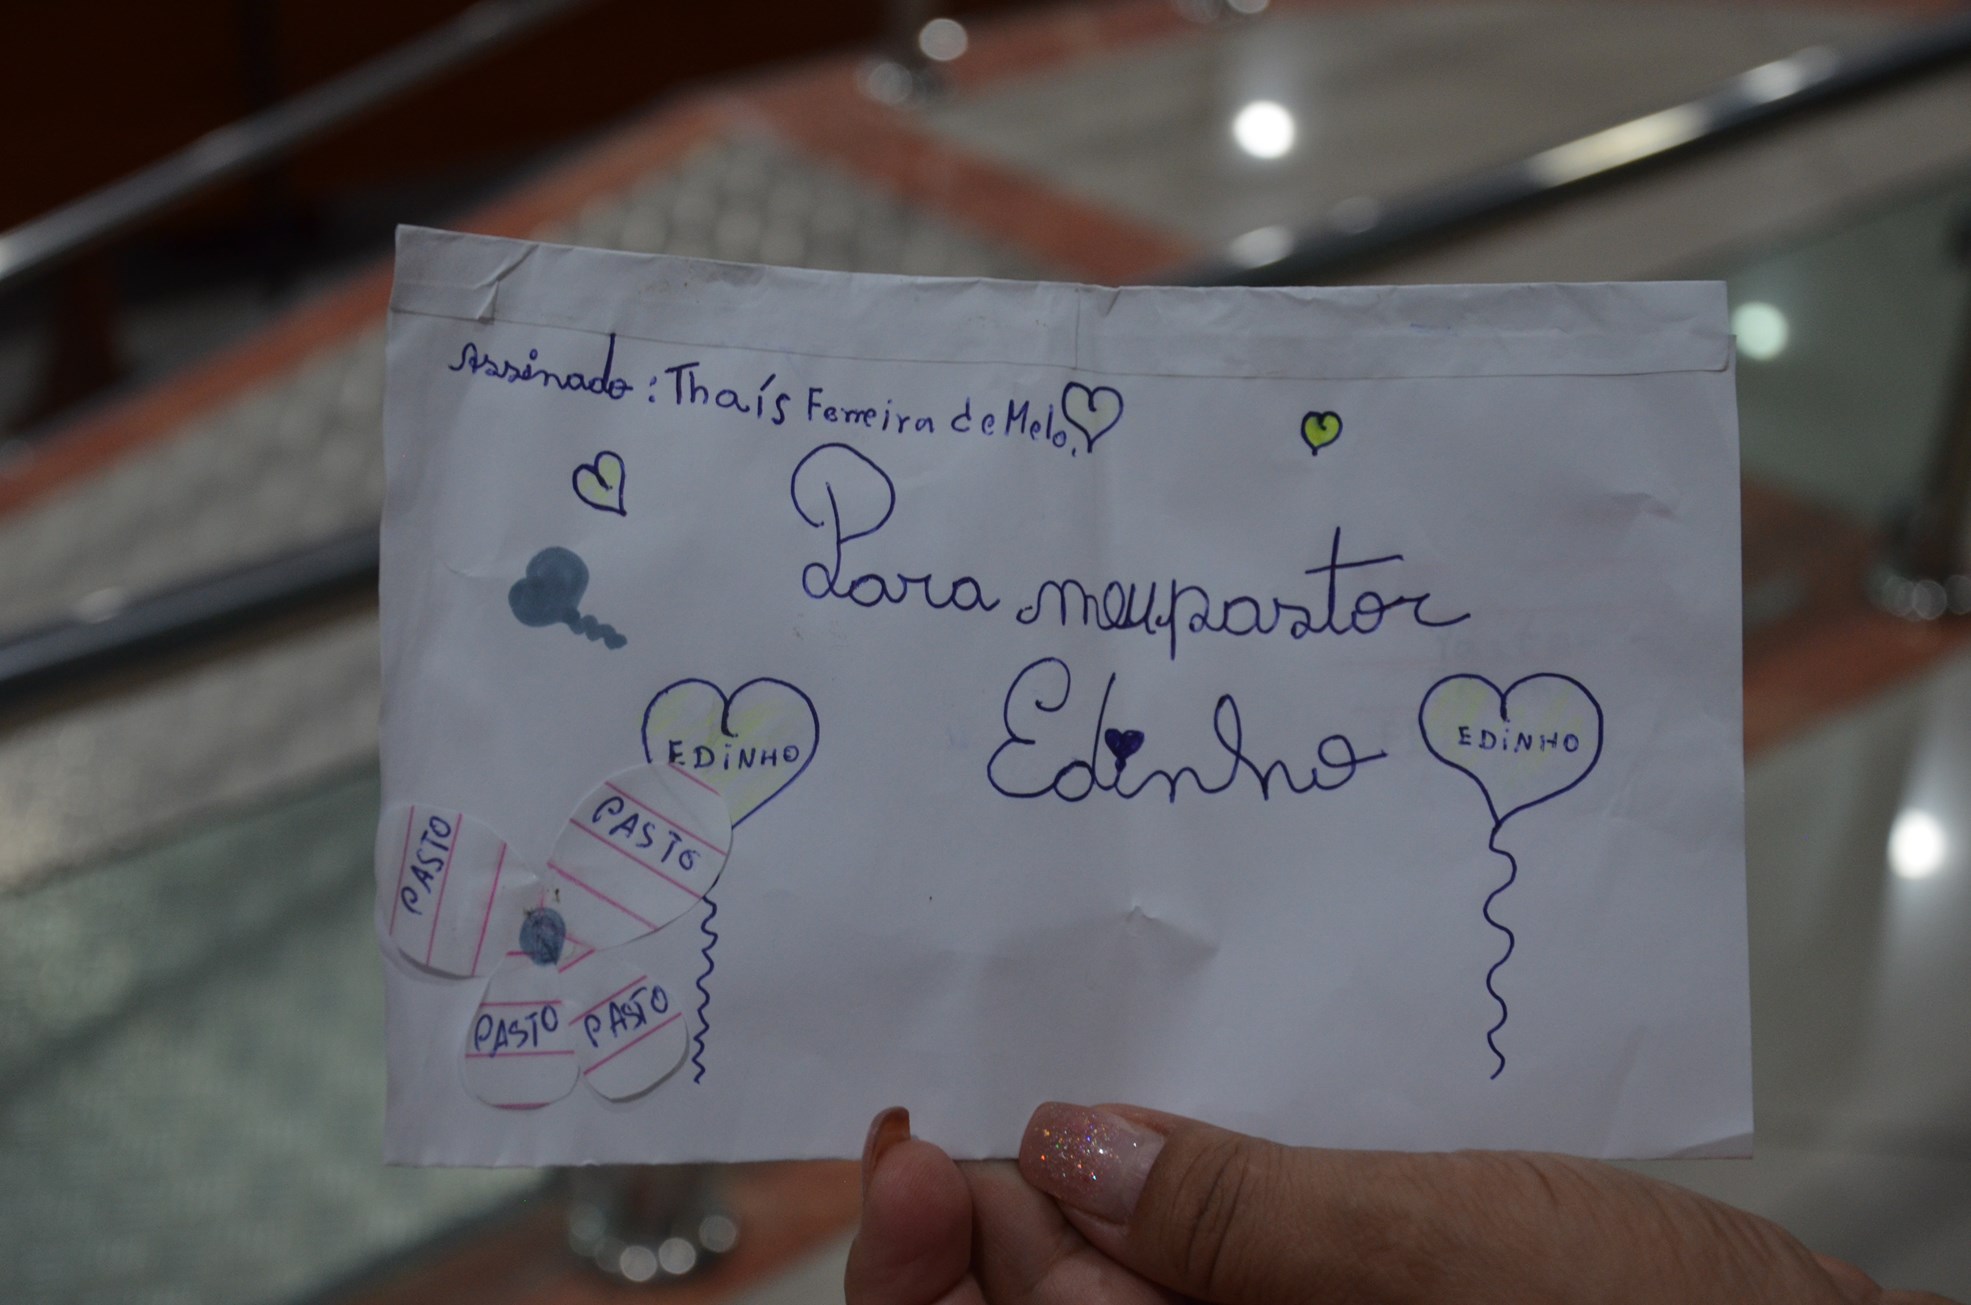 Assinado: Thaís Ferreira de Melo.
Para meu pastor
Edinho
EDiNHO
EDiNHO
PASTO
PASTO
PASTO
PASTO